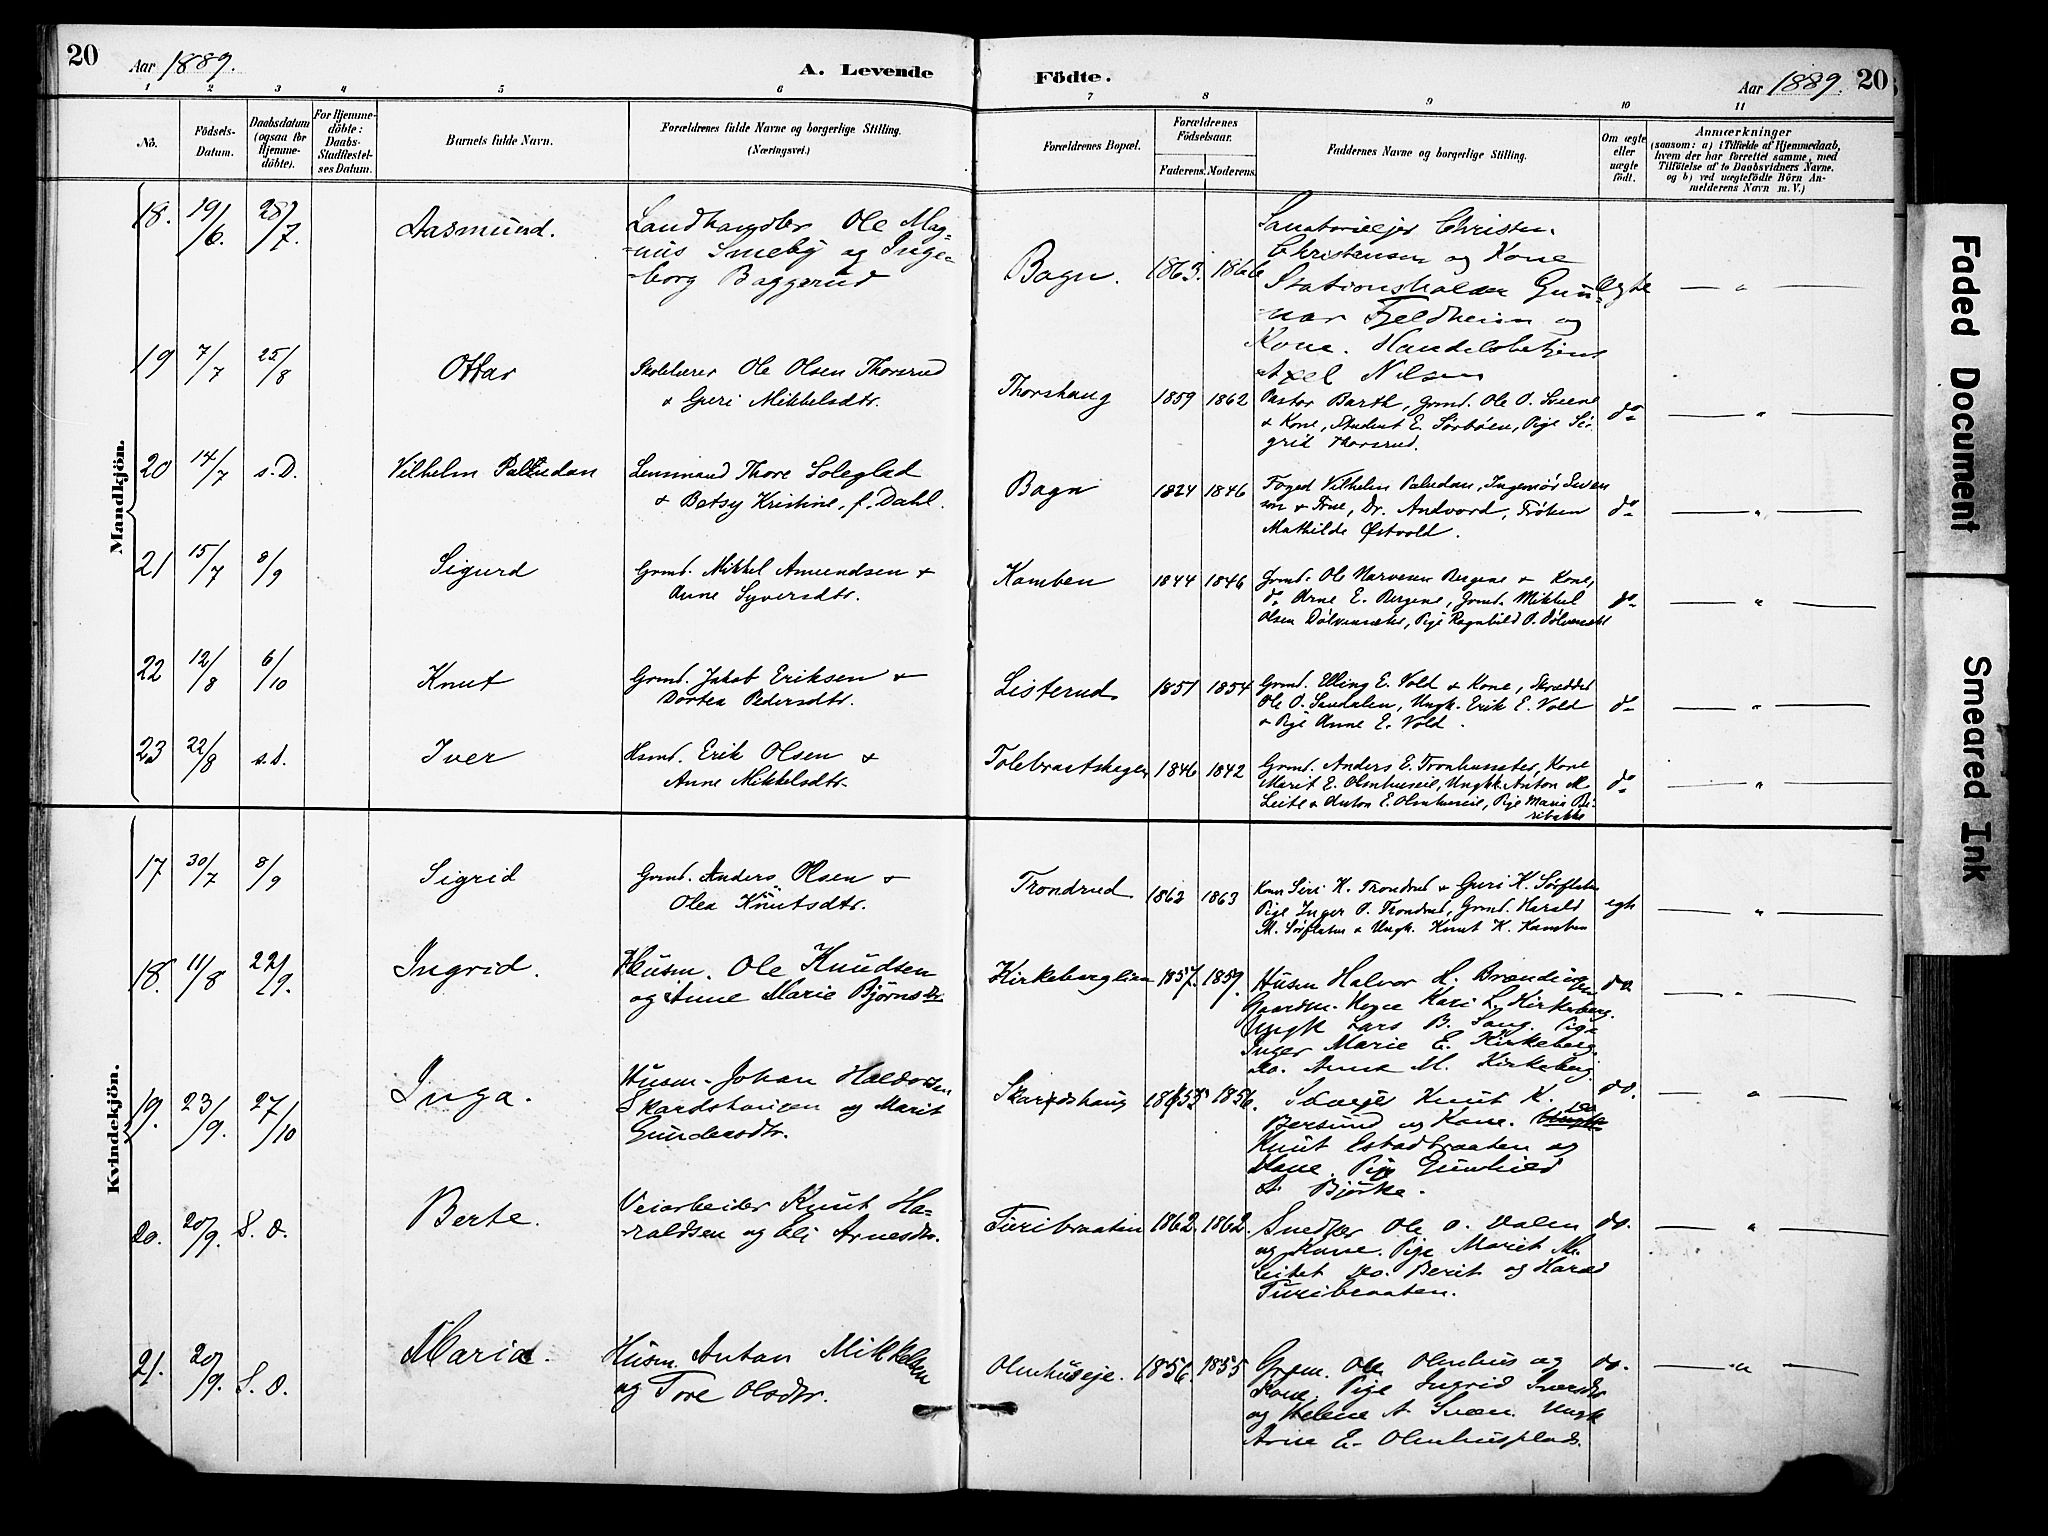 20 Aar 1889. A. Levende Födte. Aar 1889. 20
1 2 3 4 5 6 7 8 9 10 11
No. Födsels-Datum. Daabsdatum (ogsaa för Hjemmedöbte). For Hjemmedöbte: Daabs-Stadfæstelses Datum. Barnets fulde Navn. Forældrenes fulde Navne og borgerlige Stilling. (Næringsvei.) Forældrenes Bopæl. Forældrenes Födselsaar. Faderens. Moderens. Faddernes Navne og borgerlige Stilling. Om ægte eller uægte födt. Anmærkninger
(saasom: a) i Tilfælde af Hjemmedaab,
hvem der har forrettet samme, med
Tilföielse af to Daabsvidners Navne.
og b) ved uægtefödte Börn An-
melderens Navn m. V.)
Mandkjön.
18. 19/6. 28/7. Aasmund. Landhandler Ole Mag-
nus Smeby og Inge-
borg Baggerud
Bagn. 1863. 1866
Sanatorieejer Christen
Christensen og Kone
Stationsholder Gun-
nar Fjeldheim og
Kone. Handelsbetjent
Axel Nilsen
Ægte — " —
19 7/7 25/8 Ottar Skolelærer Ole Olsen Thorsrud
& Guri Mikkelsdtr.
Thorshaug 1859 1862
Pastor Barth, Grmd. Ole O. Sveene
& Kone, Student E. Sørbøen, Pige Si-
grid Thorsrud.
do — " —
20 14/7 s.D. Vilhelm Paludan Lensmand Thore Soleglad
& Betsy Kristine, f. Dahl.
Bagn 1824 1846
Foged Vilhelm Paludan, Ingeniør Iven
son & Frue, Dr. Andvord, Frøken
Mathilde Østvold.
do — " —
21 15/7 8/9 Sigurd Grmd. Mikkel Amundsen &
Anne Syversdtr.
Kamben 1844 1846
Grmd. Ole Narvesen Bergene & Kone,
do Arne E. Bergene, Grmd. Mikkel
Olsen Dølvensæter, Pige Ragnhild O. Dølvensæt
do — " —
22 12/8 6/10 Knut Grmd. Jakob Eriksen &
Dortea Pedersdtr.
Listerud 1851 1854
Grmd. Elling E. Vold & Kone, Skrædder
Ole O. Sandalen, Ungk. Erik E. Vold
& Pige Anne E. Vold.
do — " —
23 22/8 s.D. Iver Hsmd. Erik Olsen &
Anne Mikkelsdtr.
Tolebraatshagen 1846 1842
Grmd. Anders E. Tronhussæter, Kone
Marit E. Olmhuseie, Ungk. Anton M
Leite & Anton E. Olmhuseie, Pige Marie
do — " —
Kvindekjön.
17 30/7 8/9 Sigrid Grmd. Anders Olsen &
Olea Knutsdtr.
Trondrud 1862 1863
Kone Siri K. Trondrud & Guri K. Sørflaten
Pige Inger O. Trondrud, Grmd. Harald
M. Sørflaten & Ungk. Knut K. Kamben
egte — " —
18. 11/8 22/9. Ingrid. Husm. Ole Knudsen
og Anne Marie Bjørnsdtr
Kirkebergliea 1857. 1859.
Husm Halvor H. Brændingen
Gaardm. Kone Kari L. Kirkeberg.
Ungk Lars B. Pige
Inger Marie E. Kirkeberg.
do. Anne M. Kirkeberg.
do. — " —
19. 23/9. 27/10 Inga. Husm. Johan Haldorsen
Skardshaugen og Marit
Gundersdtr.
Skardshaug 1855 1856.
Knut K.
Bersund og Kone. do
Knut Islandbraaten og
Kone. Pige Gunhild
A. Bjørke.
do. — " —
20. 20/9. S. D. Berte. Veiarbeider Knut Ha-
raldsen og Eli Arnesdtr.
Turibraaten 1862. 1862.
Snedker Ole O. Dalen
og Kone. Pige Marit M.
Leitet do. Berit og Harald
Turibraaten.
do. — " —
21. 20/9. S. D. Maria. Husm. Anton Mikkelsen
og Tore Olsdtr.
Olmhuseje. 1856. 1855
Grdm. Ole Olmhus og
Kone. Pige Ingrid Iversdtr
og Helene A Sveen. Ungk
Arne E. Olmhusplads.
do. — " —
Faded Document
Smeared Ink